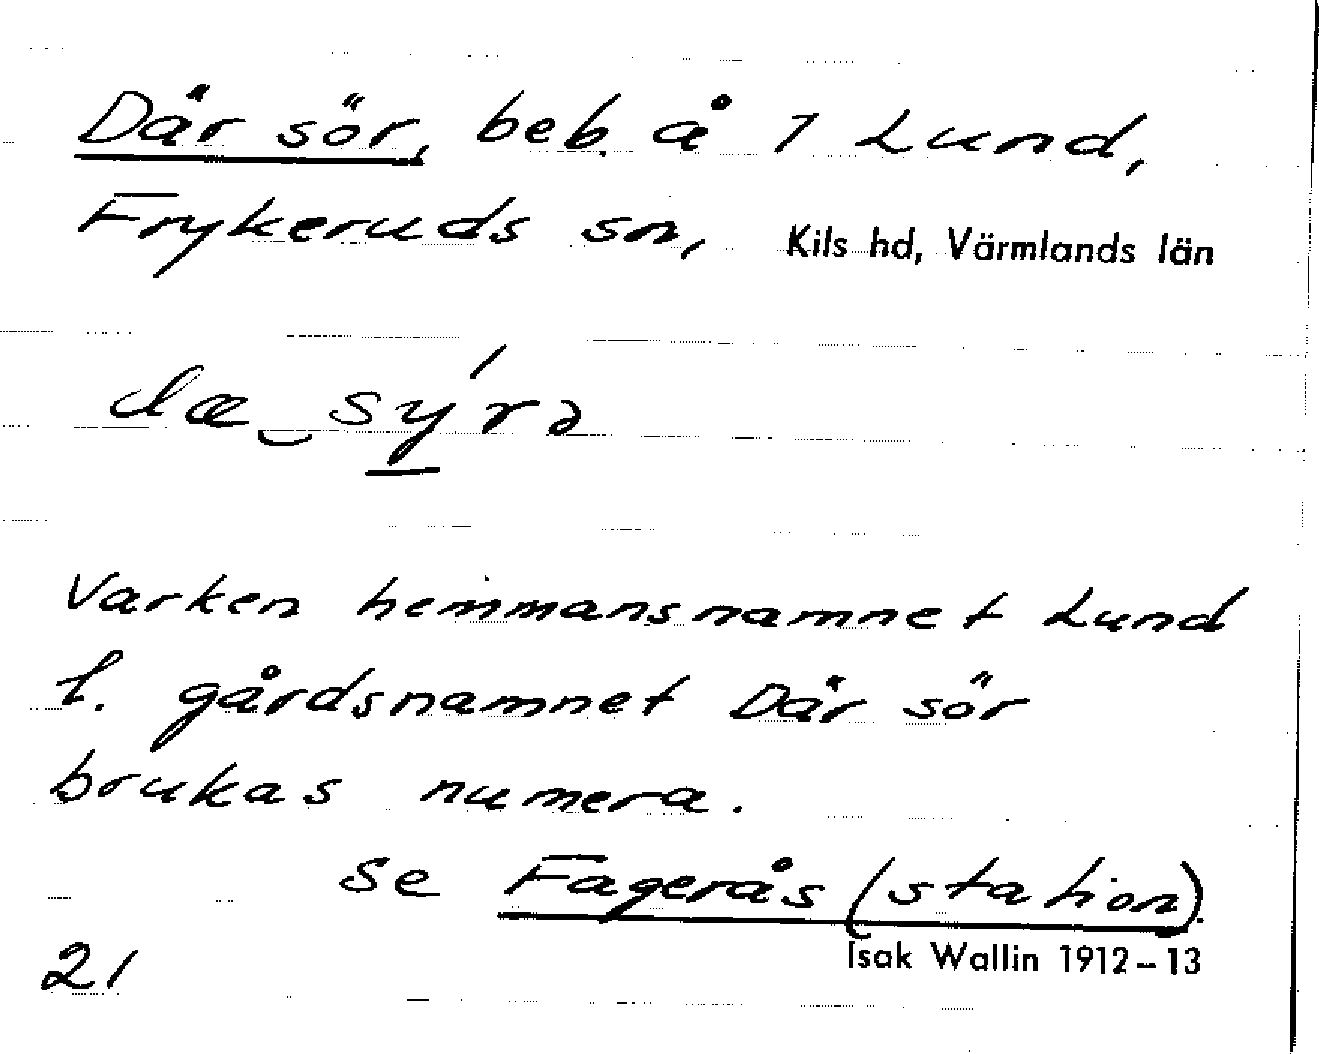 Där sör, beb. å 1 Lund,
Frykeruds sn, Kils hd, Värmlands län
dæ‿sýrə
Varken hemmansnamnet Lund
l. gårdsnamnet Där sör
brukas numera.
Se Fagerås (station).
Isak Wallin 1912-13
21